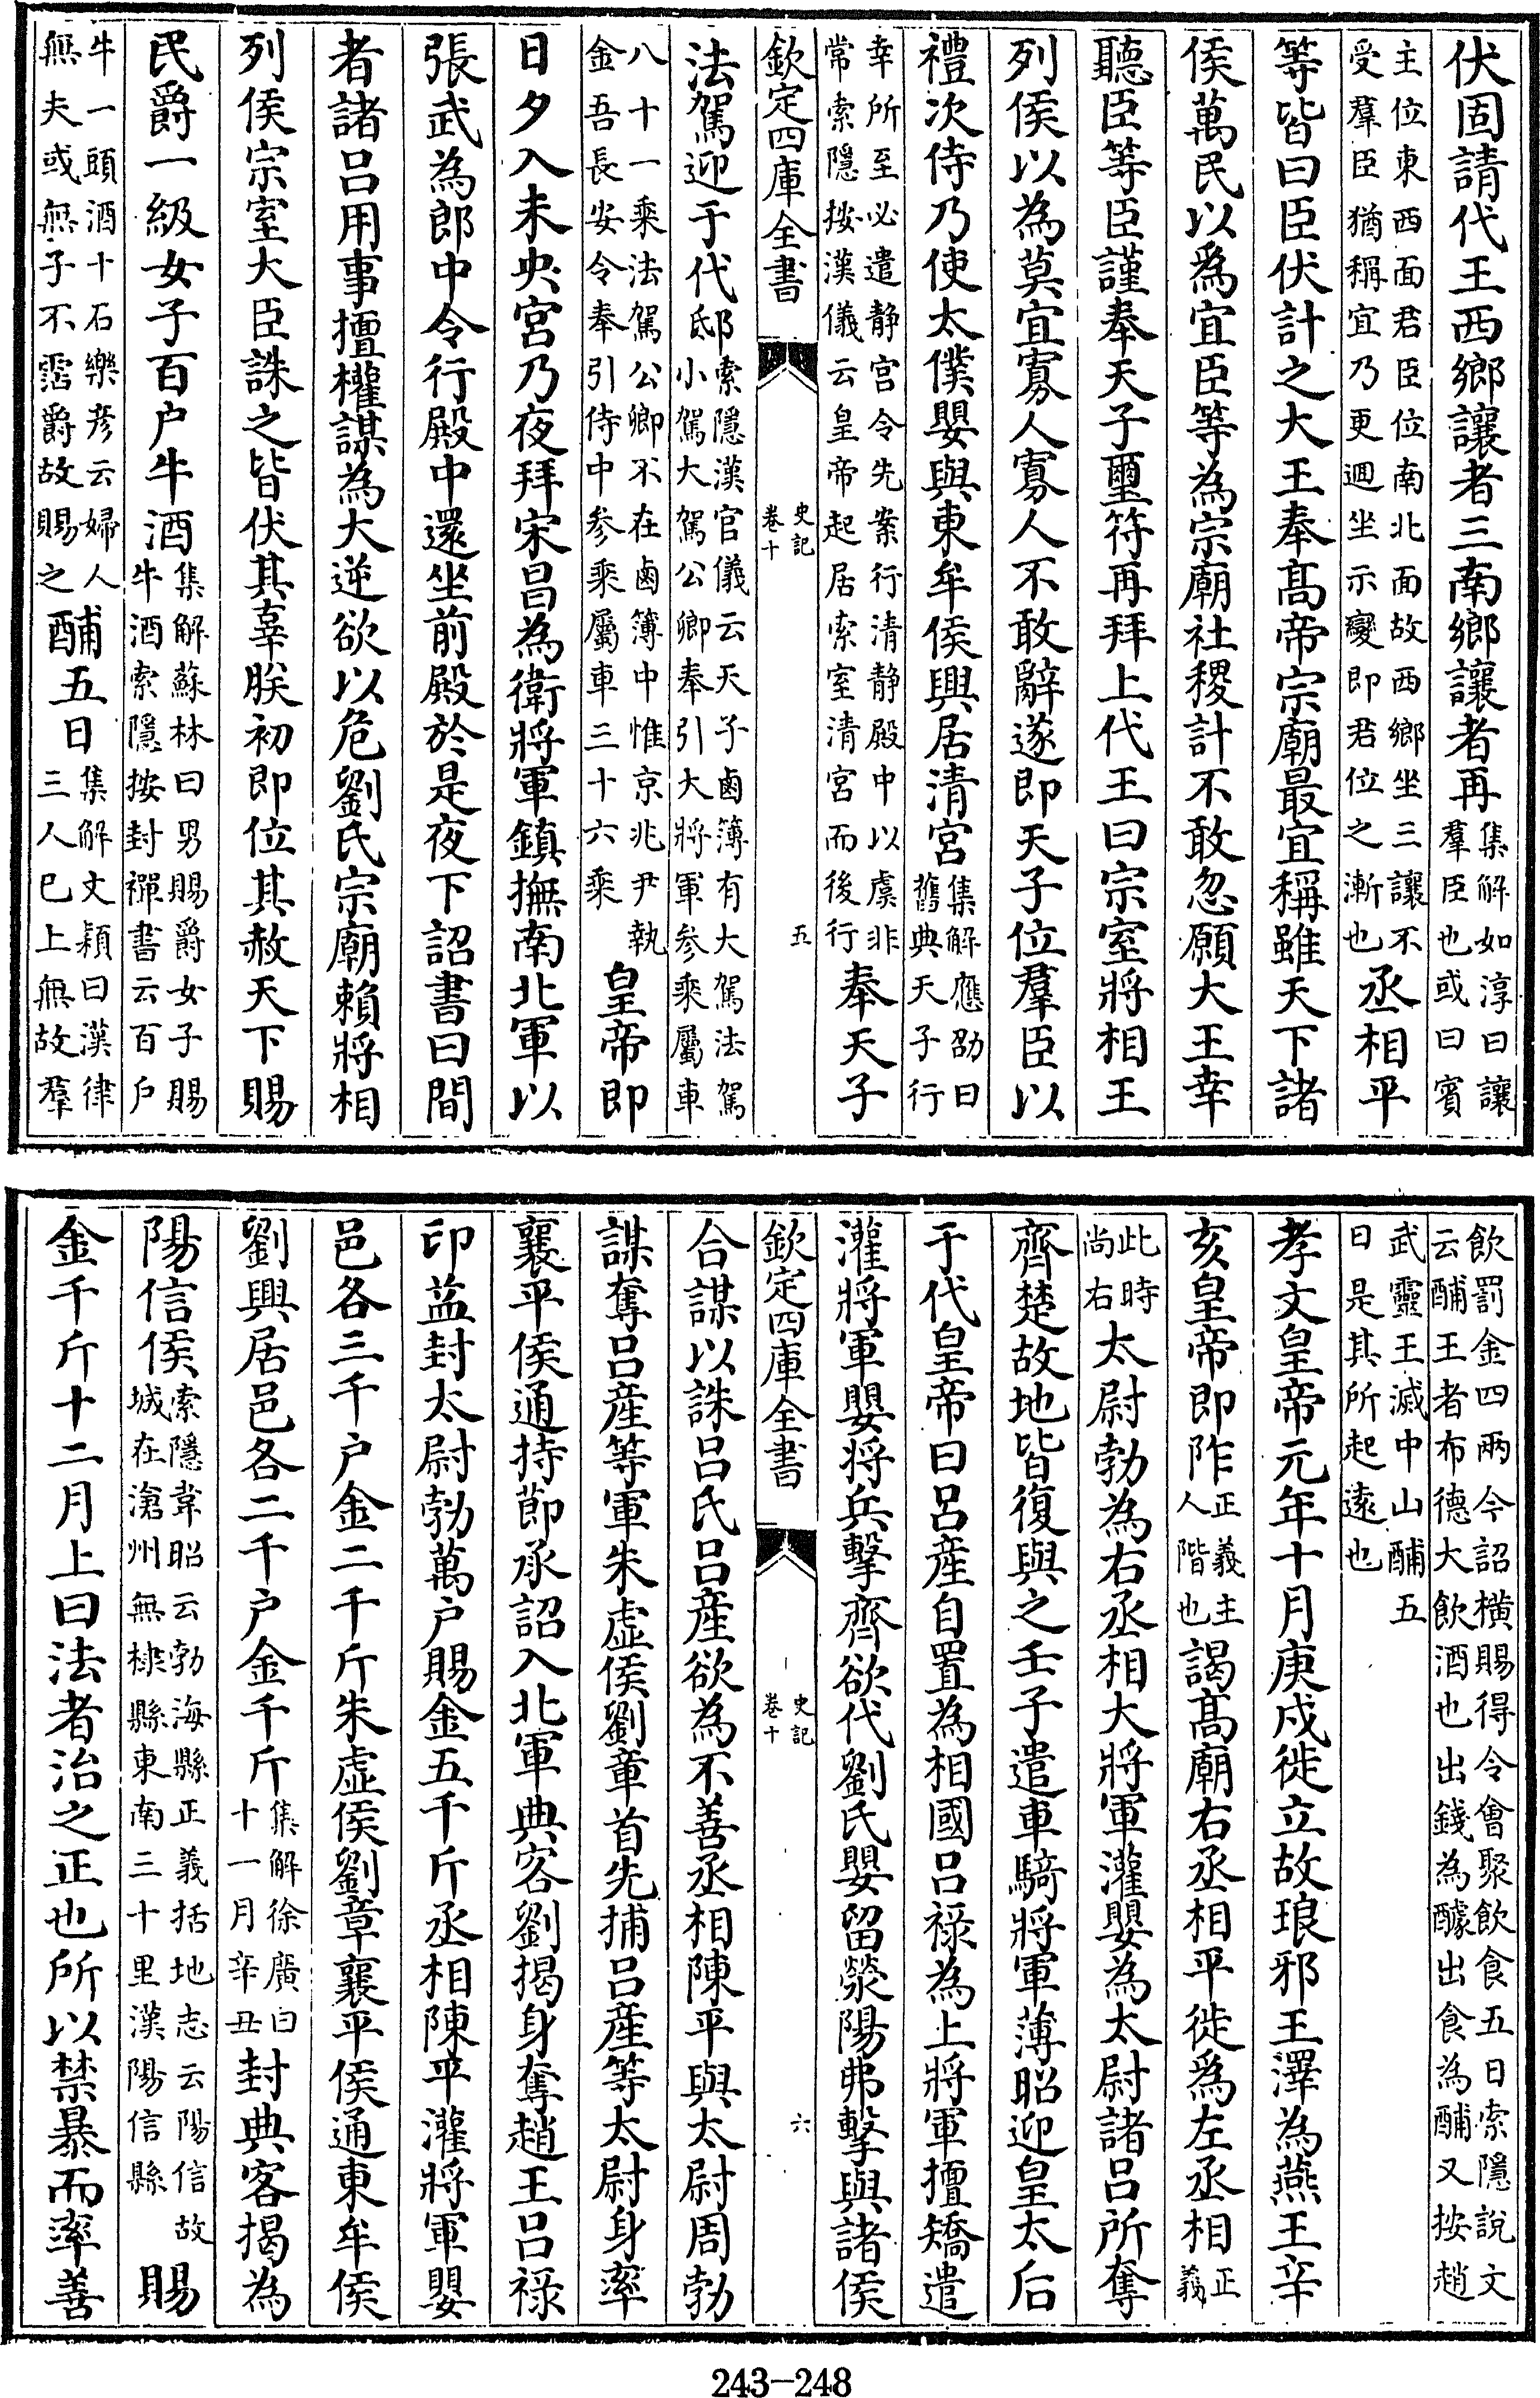 伏固請代王西鄉讓者三南鄉讓者再集解如淳曰讓羣臣也或曰賓
主位東西面君臣位南北面故西鄉坐三讓不受羣臣猶稱宜乃更迴坐示變即君位之漸也丞相平
等皆曰臣伏計之大王奉髙帝宗廟最宜稱雖天下諸
侯萬民以爲宜臣等為宗廟社稷計不敢忽願大王幸
聽臣等臣謹奉天子璽符再拜上代王曰宗室將相王
列侯以為莫宜寡人寡人不敢辭遂即天子位羣臣以
禮次侍乃使太僕嬰與東牟侯興居清宮集解應劭曰舊典天子行
幸所至必遣静宮令先案行清静殿中以虞非常索隱按漢儀云皇帝起居索室清宮而後行奉天子
欽定四庫全書
史記
卷十
五
法駕迎于代邸索隱漢官儀云天子鹵簿有大駕法駕小駕大駕公卿奉引大將軍参乘屬車
八十一乘法駕公卿不在鹵簿中惟京兆尹執金吾長安令奉引侍中参乘屬車三十六乘皇帝即
日夕入未央宮乃夜拜宋昌為衛將軍鎮撫南北軍以
張武為郎中令行殿中還坐前殿於是夜下詔書曰間
者諸呂用事擅權謀為大逆欲以危劉氏宗廟賴將相
列侯宗室大臣誅之皆伏其辜朕初即位其赦天下賜
民爵一級女子百户牛酒集解蘇林曰男賜爵女子賜牛酒索隱按封禪書云百户
牛一頭酒十石樂彦云婦人無夫或無子不霑爵故賜之酺五日集解文穎曰漢律三人已上無故羣
飲罰金四兩今詔横賜得令會聚飲食五日索隱說文云酺王者布德大飲酒也出錢為醵出食為酺又按趙
武靈王滅中山酺五日是其所起逺也
孝文皇帝元年十月庚戌徙立故琅邪王澤為燕王辛
亥皇帝即阼正義主人階也謁髙廟右丞相平徙爲左丞相正義
此時尚右太尉勃為右丞相大將軍灌嬰為太尉諸呂所奪
齊楚故地皆復與之壬子遣車騎將軍薄昭迎皇太后
于代皇帝曰呂産自置為相國呂禄為上將軍擅矯遣
灌將軍嬰將兵擊齊欲代劉氏嬰留滎陽弗擊與諸侯
欽定四庫全書
史記
卷十
六
合謀以誅呂氏呂産欲為不善丞相陳平與太尉周勃
謀奪呂産等軍朱虚侯劉章首先捕呂産等太尉身率
襄平侯通持莭承詔入北軍典客劉揭身奪趙王呂禄
印益封太尉勃萬户賜金五千斤丞相陳平灌將軍嬰
邑各三千户金二千斤朱虚侯劉章襄平侯通東牟侯
劉興居邑各二千户金千斤集解徐廣曰十一月辛丑封典客揭為
陽信侯索隱韋昭云勃海縣正義括地志云陽信故城在滄州無棣縣東南三十里漢陽信縣賜
金千斤十二月上曰法者治之正也所以禁暴而率善
243-248